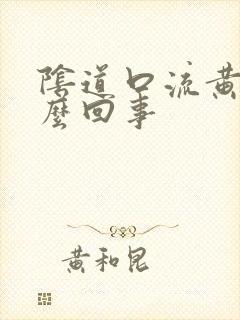 陰道口流黃
麼回事
黃和昆